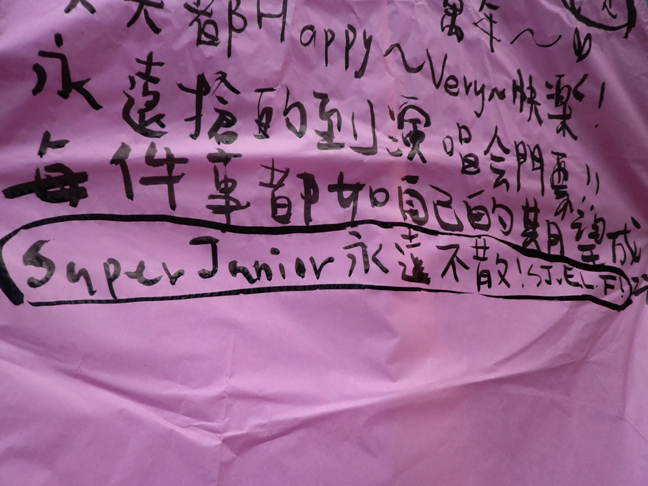 天天都Happy~萬年~
永遠搶的到演唱會門票!! Very~快樂!
每件事都如自己的期望達成
Super Junior 永遠不散! SJ.ELF